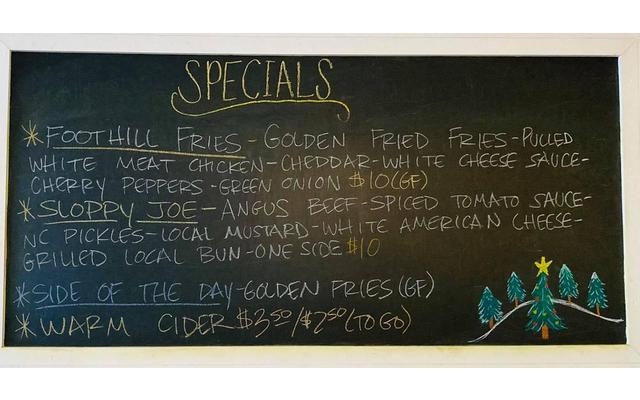 SPECIALS
* FOOTHILL FRIES - GOLDEN FRIED FRIES - PULLED
WHITE MEAT CHICKEN - CHEDDAR - WHITE CHEESE SAUCE -
CHERRY PEPPERS - GREEN ONION $10 (GF)
* SLOPPY JOE - ANGUS BEEF - SPICED TOMATO SAUCE -
NC PICKLES - LOCAL MUSTARD - WHITE AMERICAN CHEESE -
GRILLED LOCAL BUN - ONE SIDE $10
* SIDE OF THE DAY - GOLDEN FRIES (GF)
* WARM CIDER $3.50/$2.50 (TO GO)